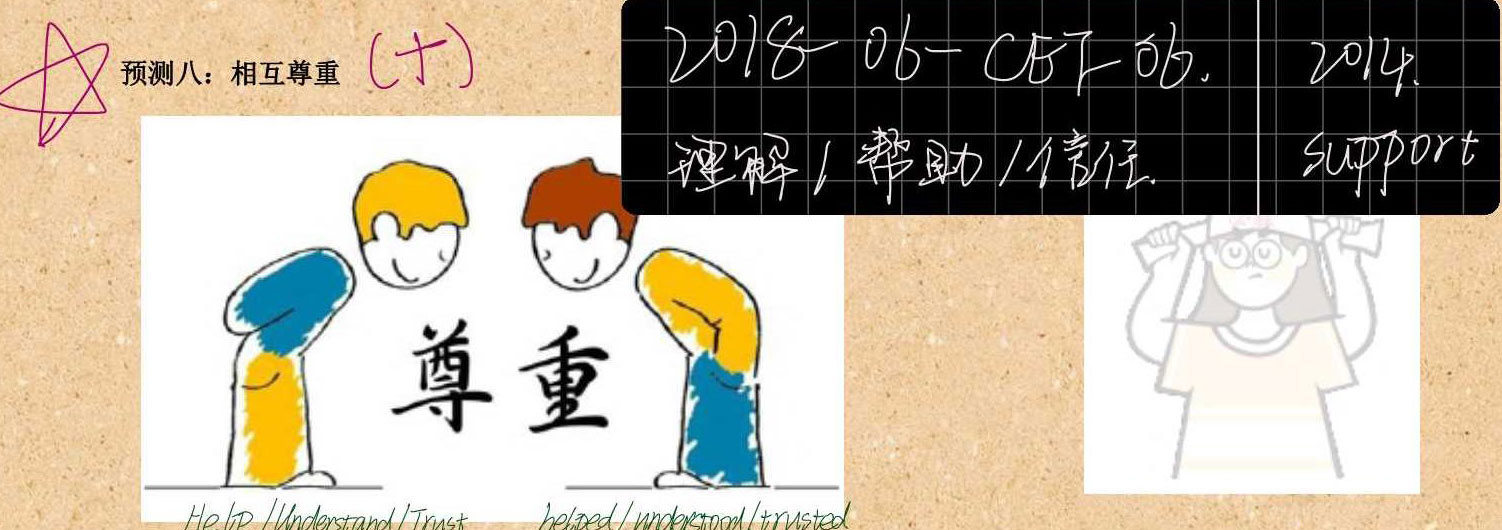 预测八：相互尊重 (十)
2018-06-CET-06.
理解/帮助/信任.
2014.
support
尊重
Help/Understand/Trust
helped/understood/trusted